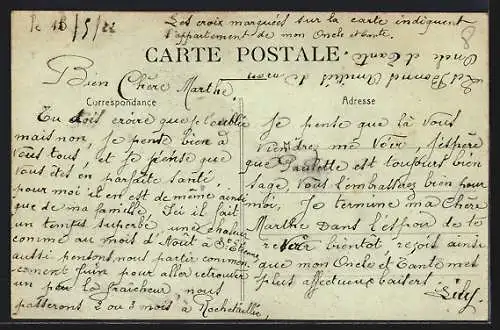 le 18/5/22
Les croix marquées sur la carte indiquent
l'appartement de mon Oncle et tante.
8
CARTE POSTALE
Bonne Amitié à
Oncle et Tante
Bien Chère Marthe,
Correspondance
Adresse
Tu dois croire que je t'oublie
mais non, je pense bien à
vous tous, et je pense que
vous êtes en parfaite santé,
pour moi il en est de même ainsi
que de ma famille. Ici il fait
un temps superbe, une chaleur
comme au mois d'Août à St Etienne
aussi pendons, nous partir comme
comment faire pour aller retrouver
un peu la fraîcheur nous
passerons 2 ou 3 mois à Rochetaillée,
Je pense que là vous
viendrez me voir, j'espère
que Paulette est toujours bien
sage, vous l'embrasserez bien pour
moi. Je termine ma Chère
Marthe dans l'espoir de te
revoir bientôt reçois ainsi
que mon Oncle et Tante mes
plus affectueux baisers.
Lily